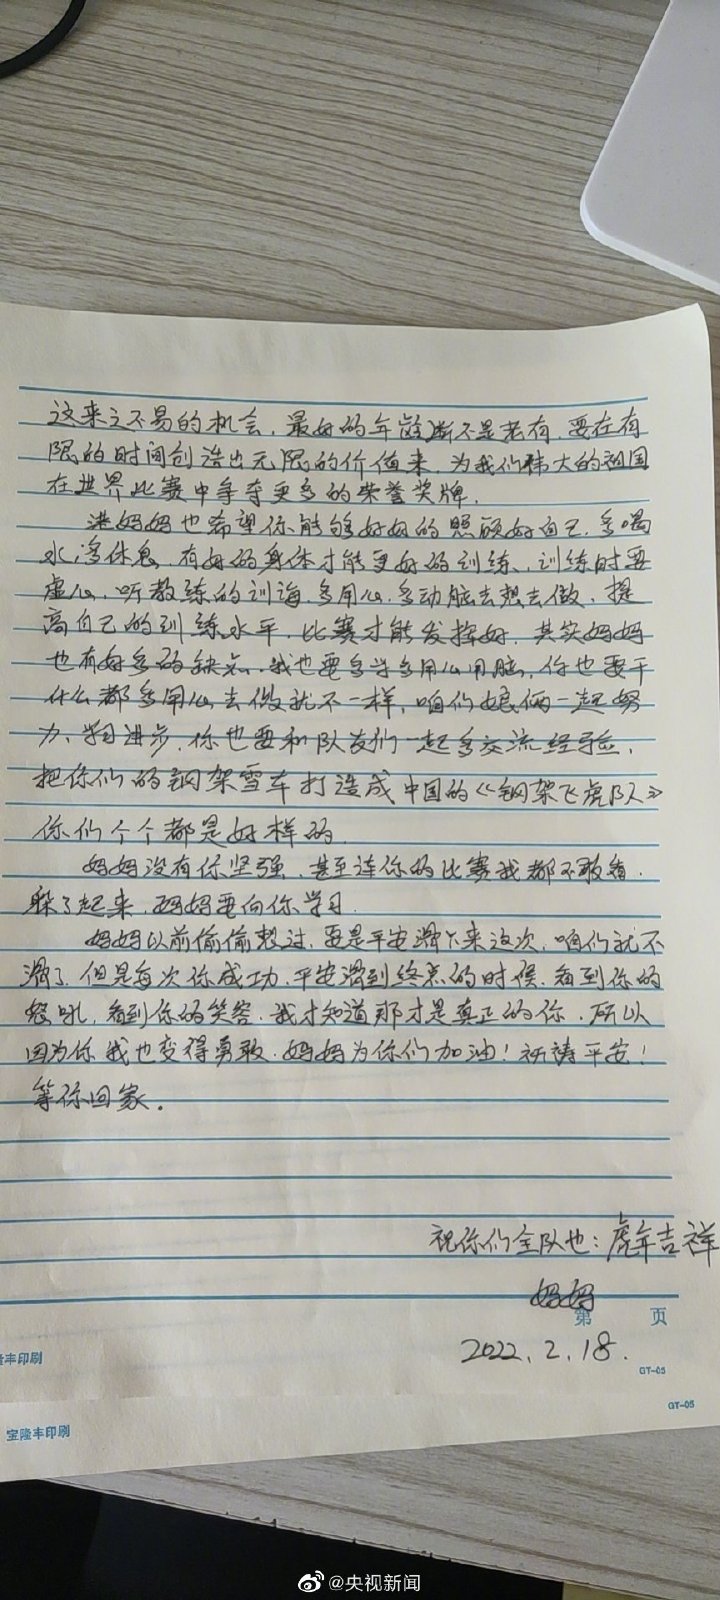 这来之不易的机会，最好的年龄段不是老有，要在有
限的时间创造出无限的价值来，为我们伟大的祖国
在世界比赛中争夺更多的荣誉奖牌，
妈妈也希望你能够好好的照顾好自己，多喝
水，多休息，有好的身体才能更好的训练，训练时要
虚心，听教练的训诲，多用心，多动脑去想去做，提
高自己的训练水平，比赛才能发挥好，其实妈妈
也有好多的缺点，我也要多学多用心用脑，你也要干
什么都多用心去做就不一样，咱们娘俩一起努
力、学习进步，你也要和队友们一起多交流经验，
把你们的钢架雪车打造成中国的《钢架飞虎队》
你们个个都是好样的，
妈妈没有你坚强，甚至连你的比赛我都不敢看，
躲了起来，妈妈要向你学习，
妈妈以前偷偷想过，要是平安滑下来这次，咱们就不
滑了，但是每次你成功、平安滑到终点的时候，看到你的
怒吼，看到你的笑容，我才知道那才是真正的你，所以
因为你我也变得勇敢，妈妈为你们加油！祈祷平安！
等你回家。
祝你们全队也：虎年吉祥
妈妈
第 页
2022.2.18.
丰印刷
GT-05
GT-05
宝隆丰印刷
@央视新闻